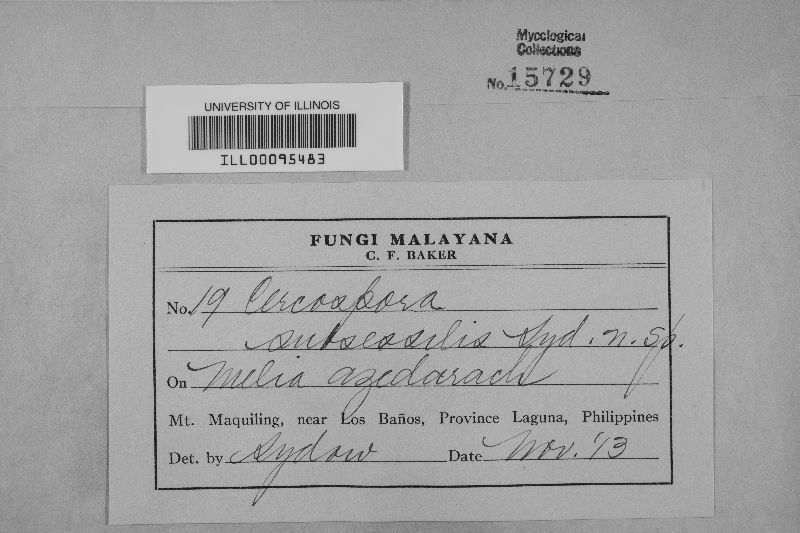 Mycological
Collections
No. 15729
UNIVERSITY OF ILLINOIS
ILL00095483
FUNGI MALAYANA
C. F. BAKER
No. 19 Cercospora
subsessilis Syd. n. sp.
On Melia azedarach
Mt. Maquiling, near Los Baños, Province Laguna, Philippines
Det. by Sydow Date Nov. '13